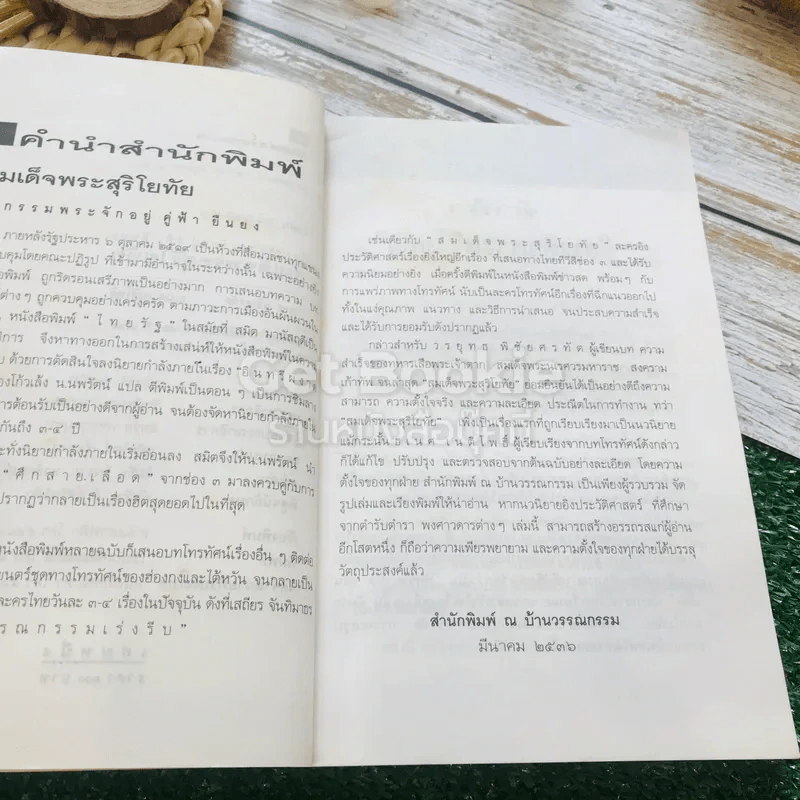 คำนำสำนักพิมพ์
มเด็จพระสุริโยทัย
กรรมพระจักอยู่ คู่ฟ้า ยืนยง
ภายหลังรัฐประหาร ๖ ตุลาคม ๒๕๑๙ เป็นห้วงที่สื่อมวลชนทุกแขนง
คุมโดยคณะปฏิรูป ที่เข้ามามีอำนาจในระหว่างนั้น เฉพาะอย่างยิ่ง
อพิมพ์ ถูกริดรอนเสรีภาพเป็นอย่างมาก การเสนอบทความ บท
ต่างๆ ถูกควบคุมอย่างเคร่งครัด ตามภาวะการเมืองอันผันผวนใน
หนังสือพิมพ์ "ไทยรัฐ" ในสมัยที่ สมิต มานัสฤดี เป็น
จึงหาทางออกในการสร้างเสน่ห์ให้หนังสือพิมพ์
ด้วยการตัดสินใจลงนิยายกำลังภายในเรื่อง
องโก้วเล้ง น.นพรัตน์ แปล ตีพิมพ์เป็นตอน ๆ เป็นการชิมลาง
การต้อนรับเป็นอย่างดีจากผู้อ่าน จนต้องจัดหานิยายกำลังภายใน
กันถึง ๓-๔ ปี
ะทั่งนิยายกำลังภายในเริ่มอ่อนลง สมิตจึงให้ น.นพรัตน์ นำ
"ศึกสายเลือด" จากช่อง ๓ มาลงควบคู่กับการ
ปรากฏว่ากลายเป็นเรื่องฮิตสุดยอดไปในที่สุด
หนังสือพิมพ์หลายฉบับก็เสนอบทโทรทัศน์เรื่องอื่น ๆ ติดต่อ
ยนตร์ชุดทางโทรทัศน์ของฮ่องกงและไต้หวัน จนกลายเป็น
ะครไทยวันละ ๓-๔ เรื่องในปัจจุบัน ดังที่เสถียร จันทิมาธร
รณกรรมเร่งรีบ"
เช่นเดียวกับ "สมเด็จพระสุริโยทัย" ละครอิง
ประวัติศาสตร์เรื่องยิ่งใหญ่อีกเรื่อง ที่เสนอทางไทยทีวีสีช่อง ๓ และได้รับ
ความนิยมอย่างยิ่ง เมื่อครั้งตีพิมพ์ในหนังสือพิมพ์ข่าวสด พร้อมๆ กับ
การแพร่ภาพทางโทรทัศน์ นับเป็นละครโทรทัศน์อีกเรื่องที่ฉีกแนวออกไป
ทั้งในแง่คุณภาพ แนวทาง และวิธีการนำเสนอ จนประสบความสำเร็จ
และได้รับการยอมรับดังปรากฏแล้ว
กล่าวสำหรับ วรยุทธ พิชัยศรทัต ผู้เขียนบท ความ
สำเร็จของทหารเสือพระเจ้าตาก สมเด็จพระนเรศวรมหาราช สงคราม
เก้าทัพ และล่าสุด "สมเด็จพระสุริโยทัย" ย่อมยืนยันได้เป็นอย่างดีถึงความ
สามารถ ความตั้งใจจริง และความละเอียด ประณีตในการทำงาน ทว่า
"สมเด็จพระสุริโยทัย" เพิ่งเป็นเรื่องแรกที่ถูกเรียบเรียงมาเป็นนวนิยาย
แม้กระนั้น ผู้เรียบเรียงจากบทโทรทัศน์ดังกล่าว
ก็ได้แก้ไข ปรับปรุง และตรวจสอบจากต้นฉบับอย่างละเอียด โดยความ
ตั้งใจของทุกฝ่าย สำนักพิมพ์ ณ บ้านวรรณกรรม เป็นเพียงผู้รวบรวม จัด
รูปเล่มและเรียงพิมพ์ให้น่าอ่าน หากนวนิยายอิงประวัติศาสตร์ ที่ศึกษา
จากตำรับตำรา พงศาวดารต่างๆ เล่มนี้ สามารถสร้างอรรถรสแก่ผู้อ่าน
อีกโสตหนึ่ง ก็ถือว่าความเพียรพยายาม และความตั้งใจของทุกฝ่ายได้บรรลุ
วัตถุประสงค์แล้ว
สำนักพิมพ์ ณ บ้านวรรณกรรม
มีนาคม ๒๕๓๖
Get Bookie
ร้านหนังสือปุ๊กปิ๊ก